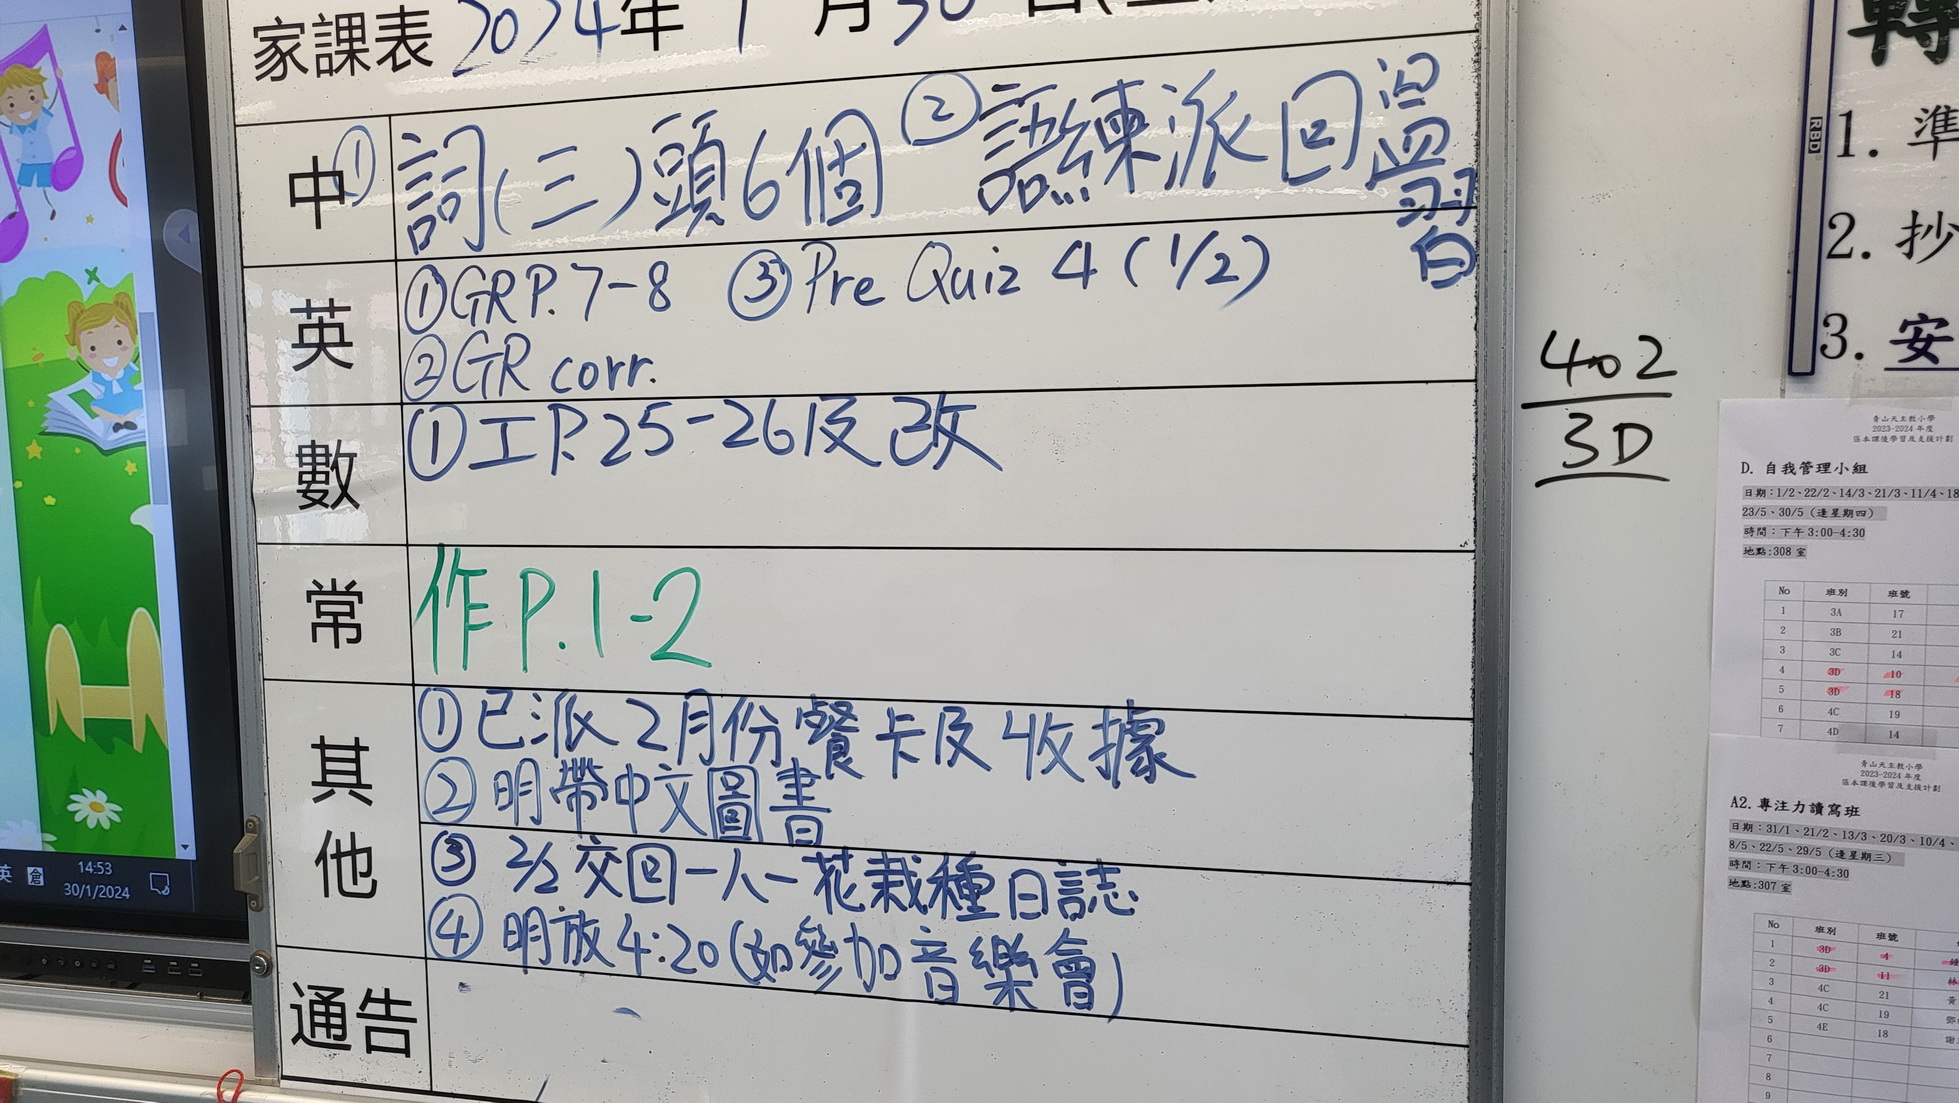 家課表 2024年1月30日
中 ①詞(三)頭6個 ②語練派回溫習
英 ①GR P.7-8 ③Pre Quiz 4 (1/2)
②GR corr.
數 ①工P.25-26及改
常 作P.1-2
其他 ①已派2月份餐卡及收據
②明帶中文圖書
③ 2/2交回一人一花栽種日誌
④ 明放4:20(如參加音樂會)
通告
402
3D
1. 準
2. 抄
3. 安
RBD
英 倉 14:53
30/1/2024
青山天主教小學
2023-2024 年度
區本課後學習及支援計劃
D. 自我管理小組
日期：1/2、22/2、14/3、21/3、11/4、18
23/5、30/5（逢星期四）
時間：下午 3:00-4:30
地點:308 室
No 班別 班號
1 3A 17
2 3B 21
3 3C 14
4 3D 10
5 3D 18
6 4C 19
7 4D 14
青山天主教小學
2023-2024 年度
區本課後學習及支援計劃
A2. 專注力讀寫班
日期：31/1、21/2、13/3、20/3、10/4、
8/5、22/5、29/5（逢星期三）
時間：下午 3:00-4:30
地點:307 室
No 班別 班號
1 3D 4
2 3D 11
3 4C 21 黃
4 4C 19
5 4E 18 謝
6
7
8
9